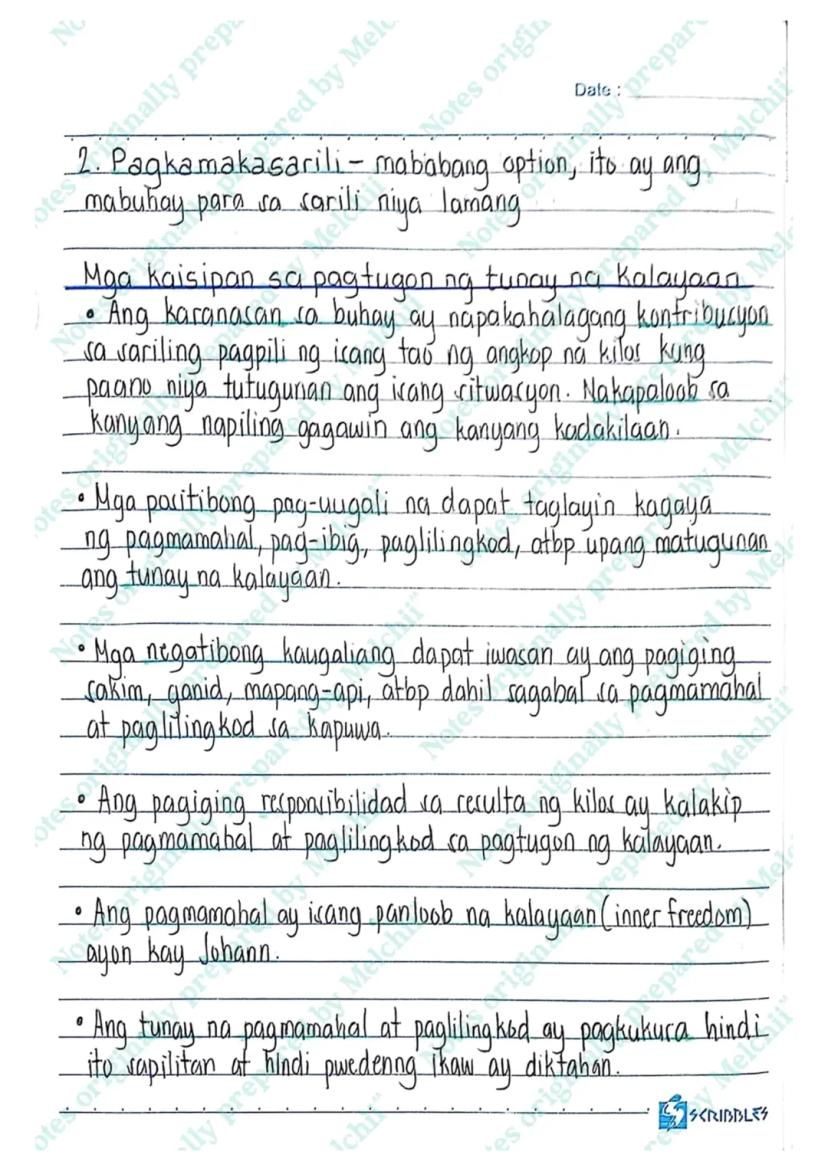 Date :
2. Pagkamakasarili - mababang option, ito ay ang
mabuhay para sa sarili niya lamang
Mga kaisipan sa pagtugon ng tunay na kalayaan
• Ang karanasan sa buhay ay napakahalagang kontribusyon
sa sariling pagpili ng isang tao ng angkop na kilos kung
paano niya tutugunan ang isang sitwasyon. Nakapaloob sa
kanyang napiling gagawin ang kanyang kadakilaan.
• Mga positibong pag-uugali na dapat taglayin kagaya
ng pagmamahal, pag-ibig, paglilingkod, atbp upang matugunan
ang tunay na kalayaan.
• Mga negatibong kaugaliang dapat iwasan ay ang pagiging
sakim, ganid, mapang-api, atbp dahil sagabal sa pagmamahal
at paglilingkod sa kapuwa.
• Ang pagiging responsibilidad sa resulta ng kilos ay kalakip
ng pagmamahal at paglilingkod sa pagtugon ng kalayaan.
• Ang pagmamahal ay isang panloob na kalayaan (inner freedom)
ayon kay Johann.
• Ang tunay na pagmamahal at paglilingkod ay pagkukusa hindi
ito sapilitan at hindi pwedenng ikaw ay diktahan.
SCRIBBLES
Notes originally prepared by Melchii"